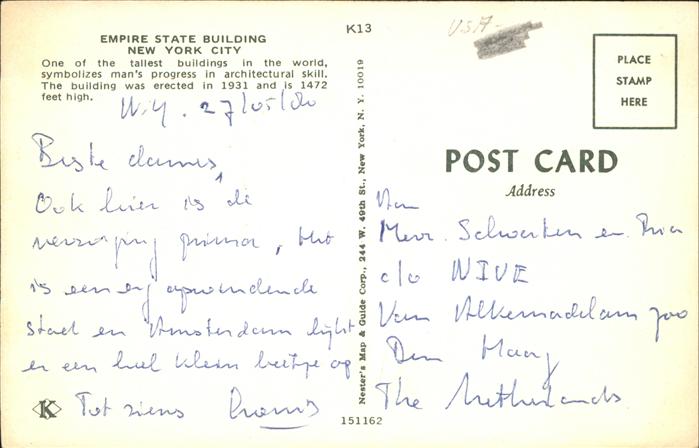 EMPIRE STATE BUILDING
NEW YORK CITY
One of the tallest buildings in the world,
symbolizes man's progress in architectural skill.
The building was erected in 1931 and is 1472
feet high.
N.Y. 27/05/80
Beste dames,
Ook hier is de
verzorging prima, Het
is een erg opwindende
stad en Amsterdam lijkt
er een heel klein beetje op
Tot ziens
K
K13
Nester's Map & Guide Corp., 244 W. 49th St., New York, N. Y. 10019
151162
USA
PLACE
STAMP
HERE
POST CARD
Address
Aan
Mevr. Schwarten en Ria
c/o NIVE
Van Alkemadelaan 700
Den Haag
The Netherlands